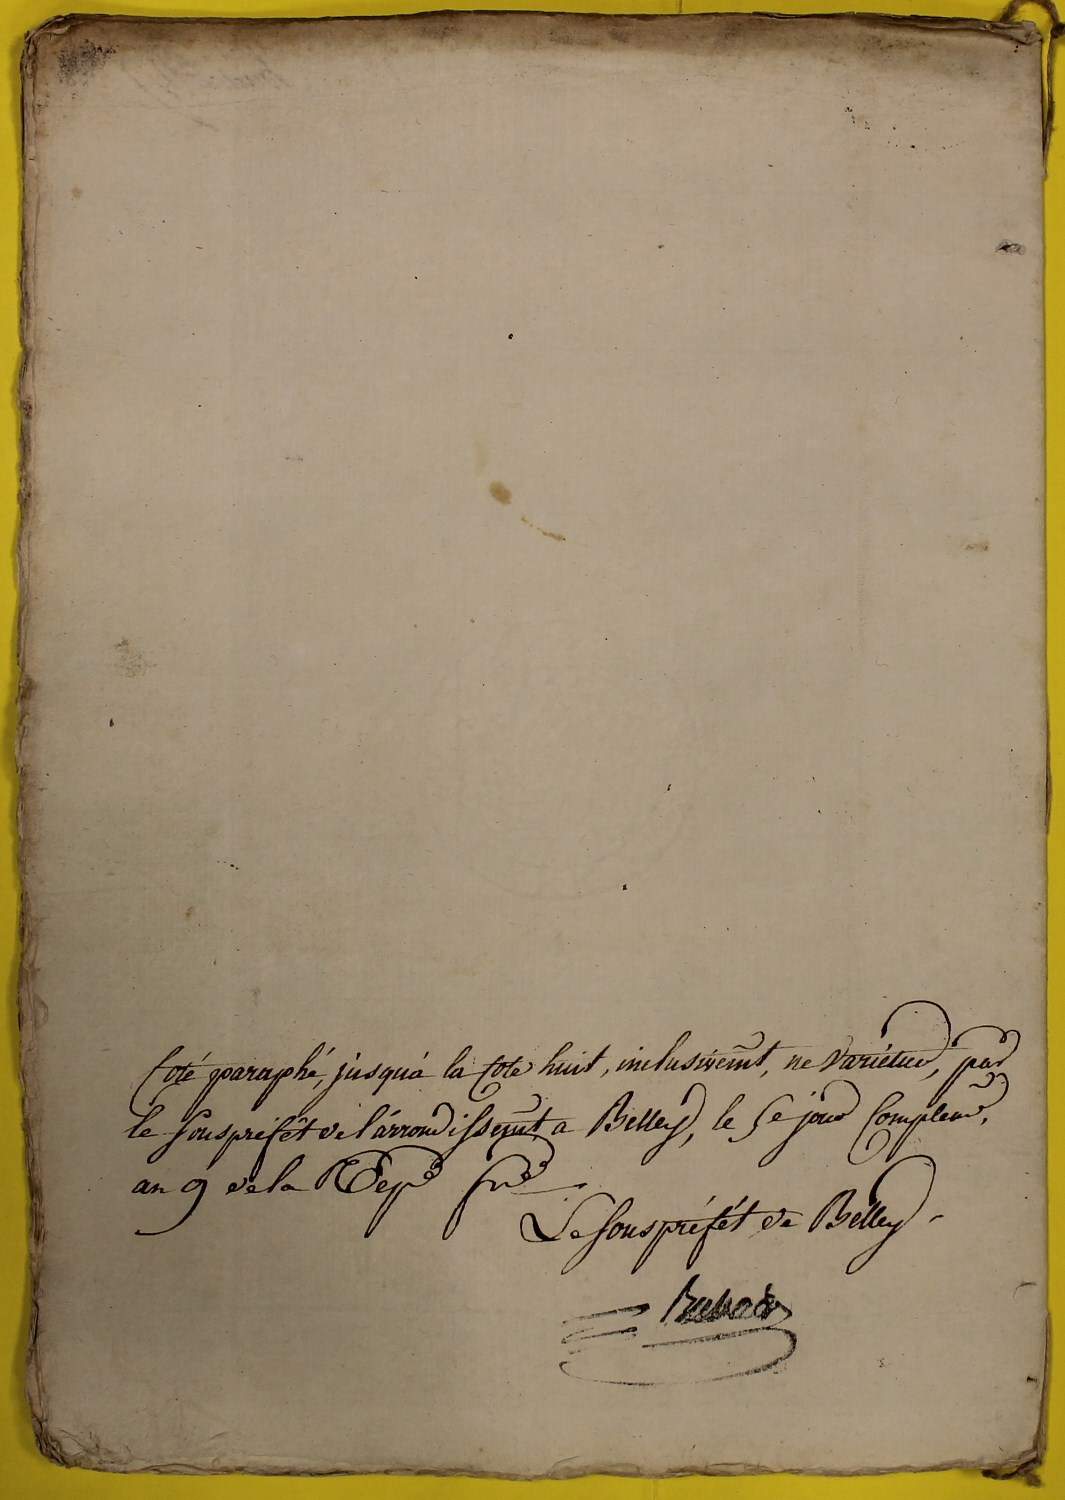 Coté paraphé, jusquà la cote huit, inclusivemt, ne varietur, par
le souspréfêt de l'arrondissemt a Belley, le 5e jour Complemre,
an 9 de la Repe fse
Le souspréfét de Belley